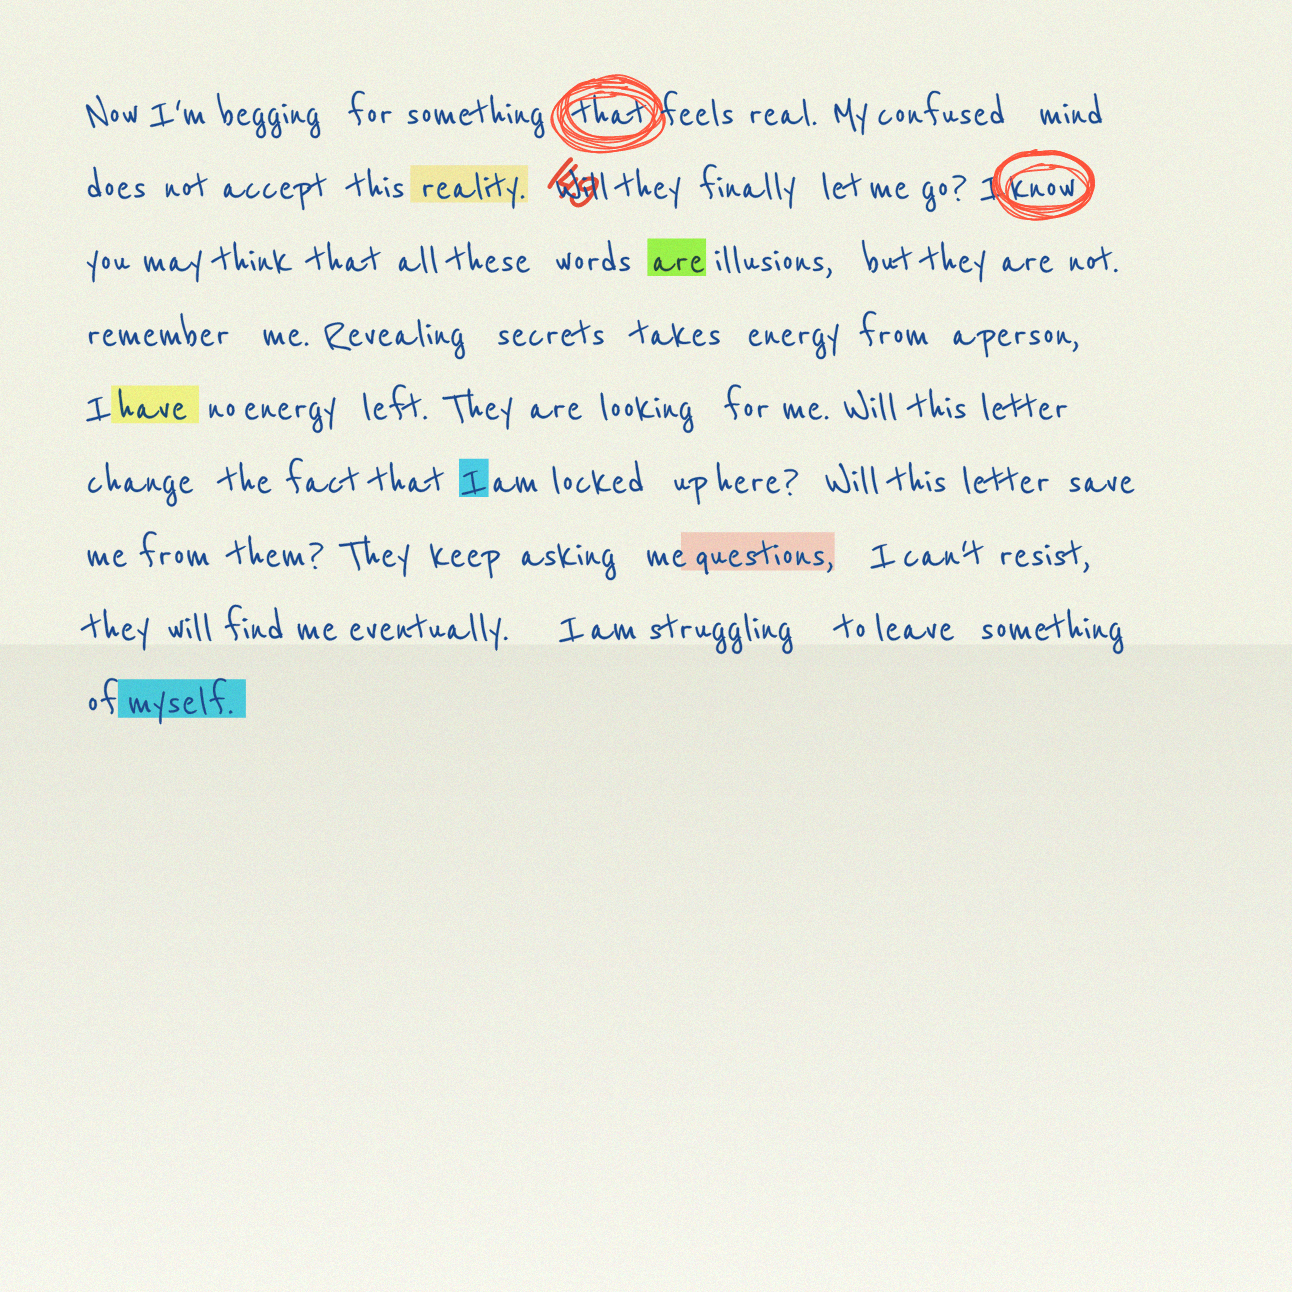 Now I'm begging for something that feels real. My confused mind
does not accept this reality. Will they finally let me go? I know
you may think that all these words are illusions, but they are not.
remember me. Revealing secrets takes energy from a person,
I have no energy left. They are looking for me. Will this letter
change the fact that I am locked up here? Will this letter save
me from them? They keep asking me questions, I can't resist,
they will find me eventually. I am struggling to leave something
of myself.